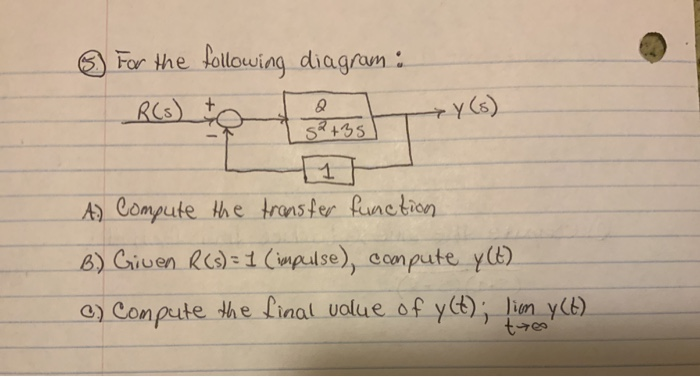 5.) For the following diagram:
R(s) + 2 Y(s)
- s²+3s
1
A.) Compute the transfer function
B.) Given R(s)=1 (impulse), compute y(t)
C.) Compute the final value of y(t); lim y(t)
t→∞